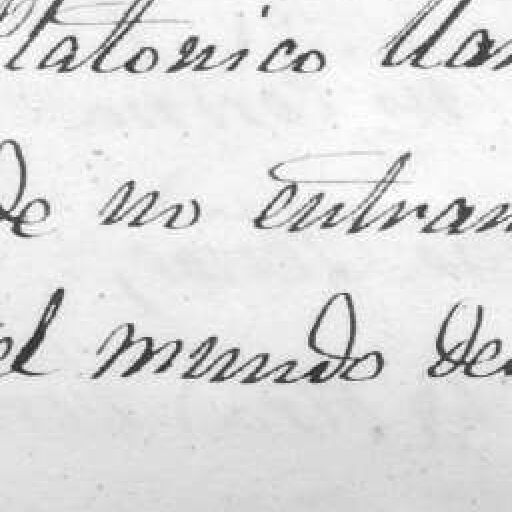 Platonico llam
de no entram
el mundo de